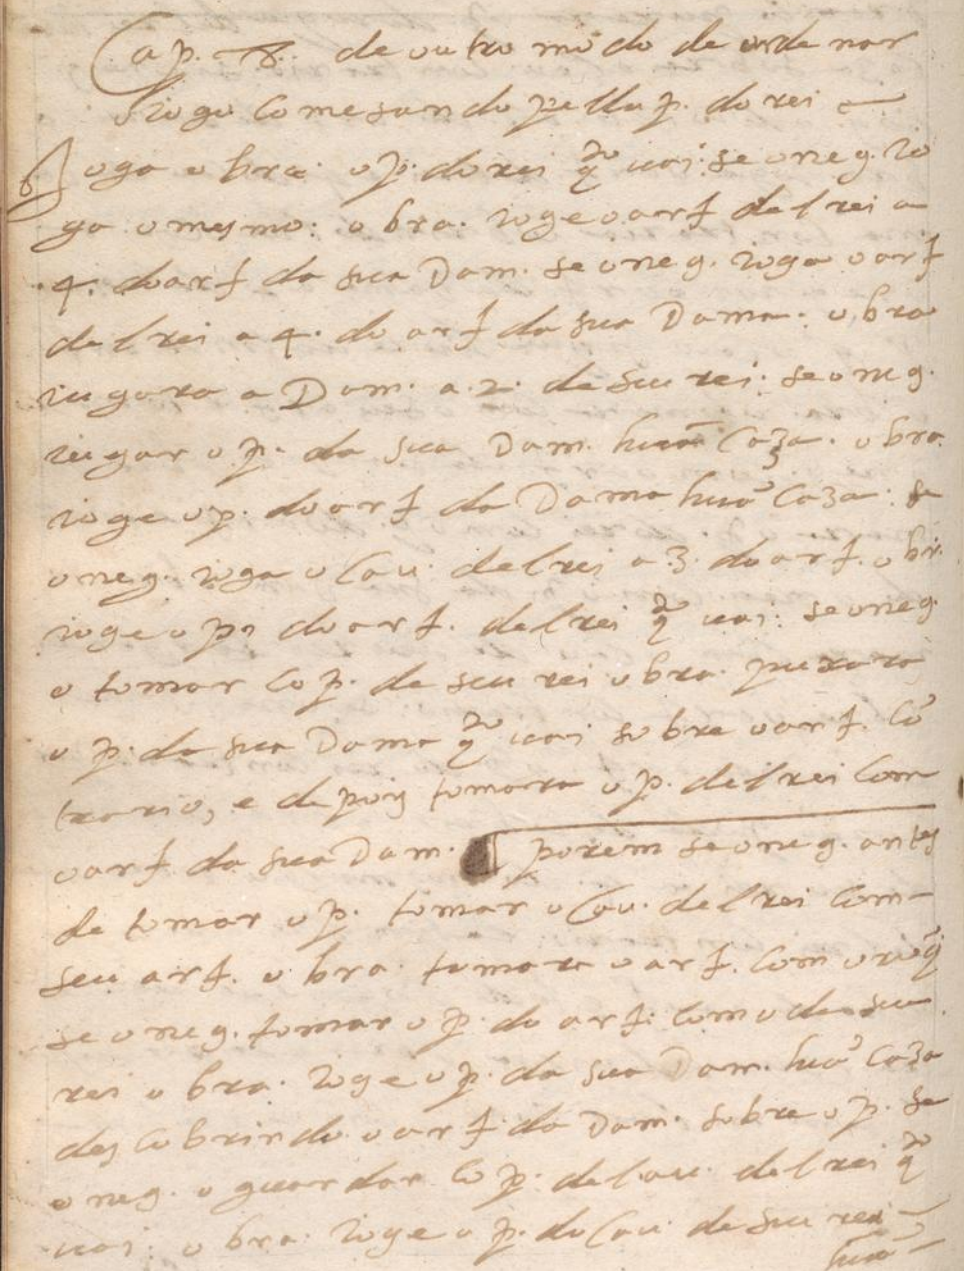 Cap. 8. de outro modo de ordenar
Iogo Comesando pella p. do rei
Ioga o bra. o p. do rei q̃to uai: se o neg. Io
ga o mesmo: o bra. Ioge o arf del rei a
4. do arf da sua Dam. se o neg. Ioga o arf
del rei a 4. do arf da sua Dama. o bra
iugara a Dam. a 2. de seu rei. se o neg.
iugar o p. da sua Dam. huã Caza. o bra.
Ioge o p. do arf da Dama huã Caza: se
o neg. Ioga o Cau. del rei a 3. do arf. o br.
Ioge o p. do arf. del rei q̃to uai: se o neg.
o tomar Co p. de seu rei o bra. puxara
o p. da sua Dama q̃to uai sobre o arf. Cõ
trario, e depois tomara o p. del rei Com
o arf da sua Dam. porem se o neg. antes
de tomar o p. tomar o Cau. del rei Com
seu arf. o bra. tomara o arf. Com o roq̃
se o neg. tomar o p. do arf: Com o de seu
rei o bra. Ioge o p. da sua Dam. huã Caza
descobrindo o arf da Dam. sobre o p. se
o neg. o guardar Co p. del Cau. del rei q̃to
uai: o bra. Ioge o p. do Cau de seu rei
huã